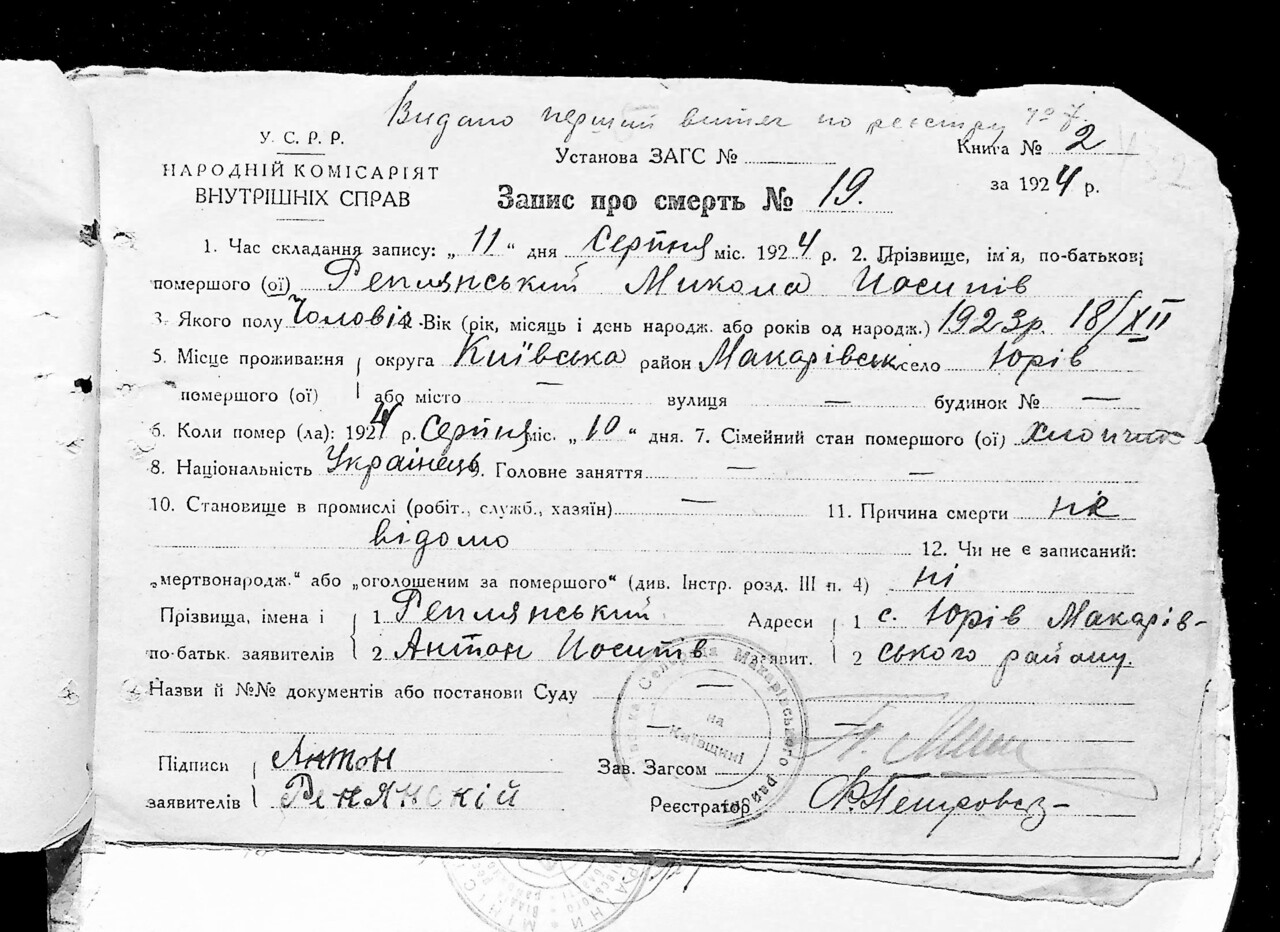 Видано перший витяг по реєстру № 7.
У. С. Р. Р.
НАРОДНІЙ КОМІСАРІЯТ
ВНУТРІШНІХ СПРАВ
Установа ЗАГС №
Книга № 2
за 1924 р.
Запис про смерть № 19.
1. Час складання запису: „ 11 “ дня Серпня міс. 1924 р. 2. Прізвище, ім'я, по-батькові
помершого (ої) Реплянський Микола Иосипів
3. Якого полу Чоловіч 4. Вік (рік, місяць і день народж. або років од народж.) 1923р. 18/XII
5. Місце проживання округа Київська район Макарівськ село Юрів
помершого (ої) або місто — вулиця — будинок № —
6. Коли помер (ла): 1924 р. Серпня міс. „ 10 “ дня. 7. Сімейний стан помершого (ої) хлопчик
8. Національність Українець 9. Головне заняття — —
10. Становище в промислі (робіт., служб., хазяїн) — 11. Причина смерти не
відомо 12. Чи не є записаний:
„мертвонародж.“ або „оголошеним за помершого“ (див. Інстр. розд. III п. 4) ні
Прізвища, імена і 1 Реплянський Адреси 1 с. Юрів Макарів-
по-батьк. заявителів 2 Антон Иосипів заявит. 2 ського району.
Назви й №№ документів або постанови Суду —
—
Підписи Антон Зав. Загсом
заявителів Ренянскій Реєстратор Петровсь
Сельрада Макарівського рай
на Київщині